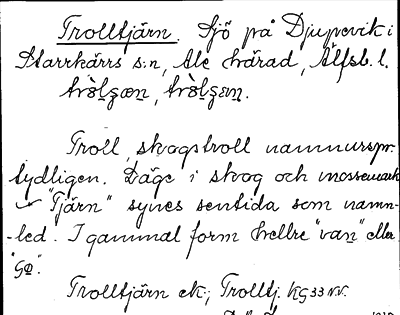 Trolltjärn. Sjö på Djupevik i
Starrkärrs s:n, Ale härad, Älfsb. l.
Troll, skogstroll namnurspr.
tydligen. Läge i skog och mossemark
"Tjärn" synes sentida som namn-
-led. I gammal form hellre "van" eller
Trolltjärn ek; Trolltj. KG33 NV.